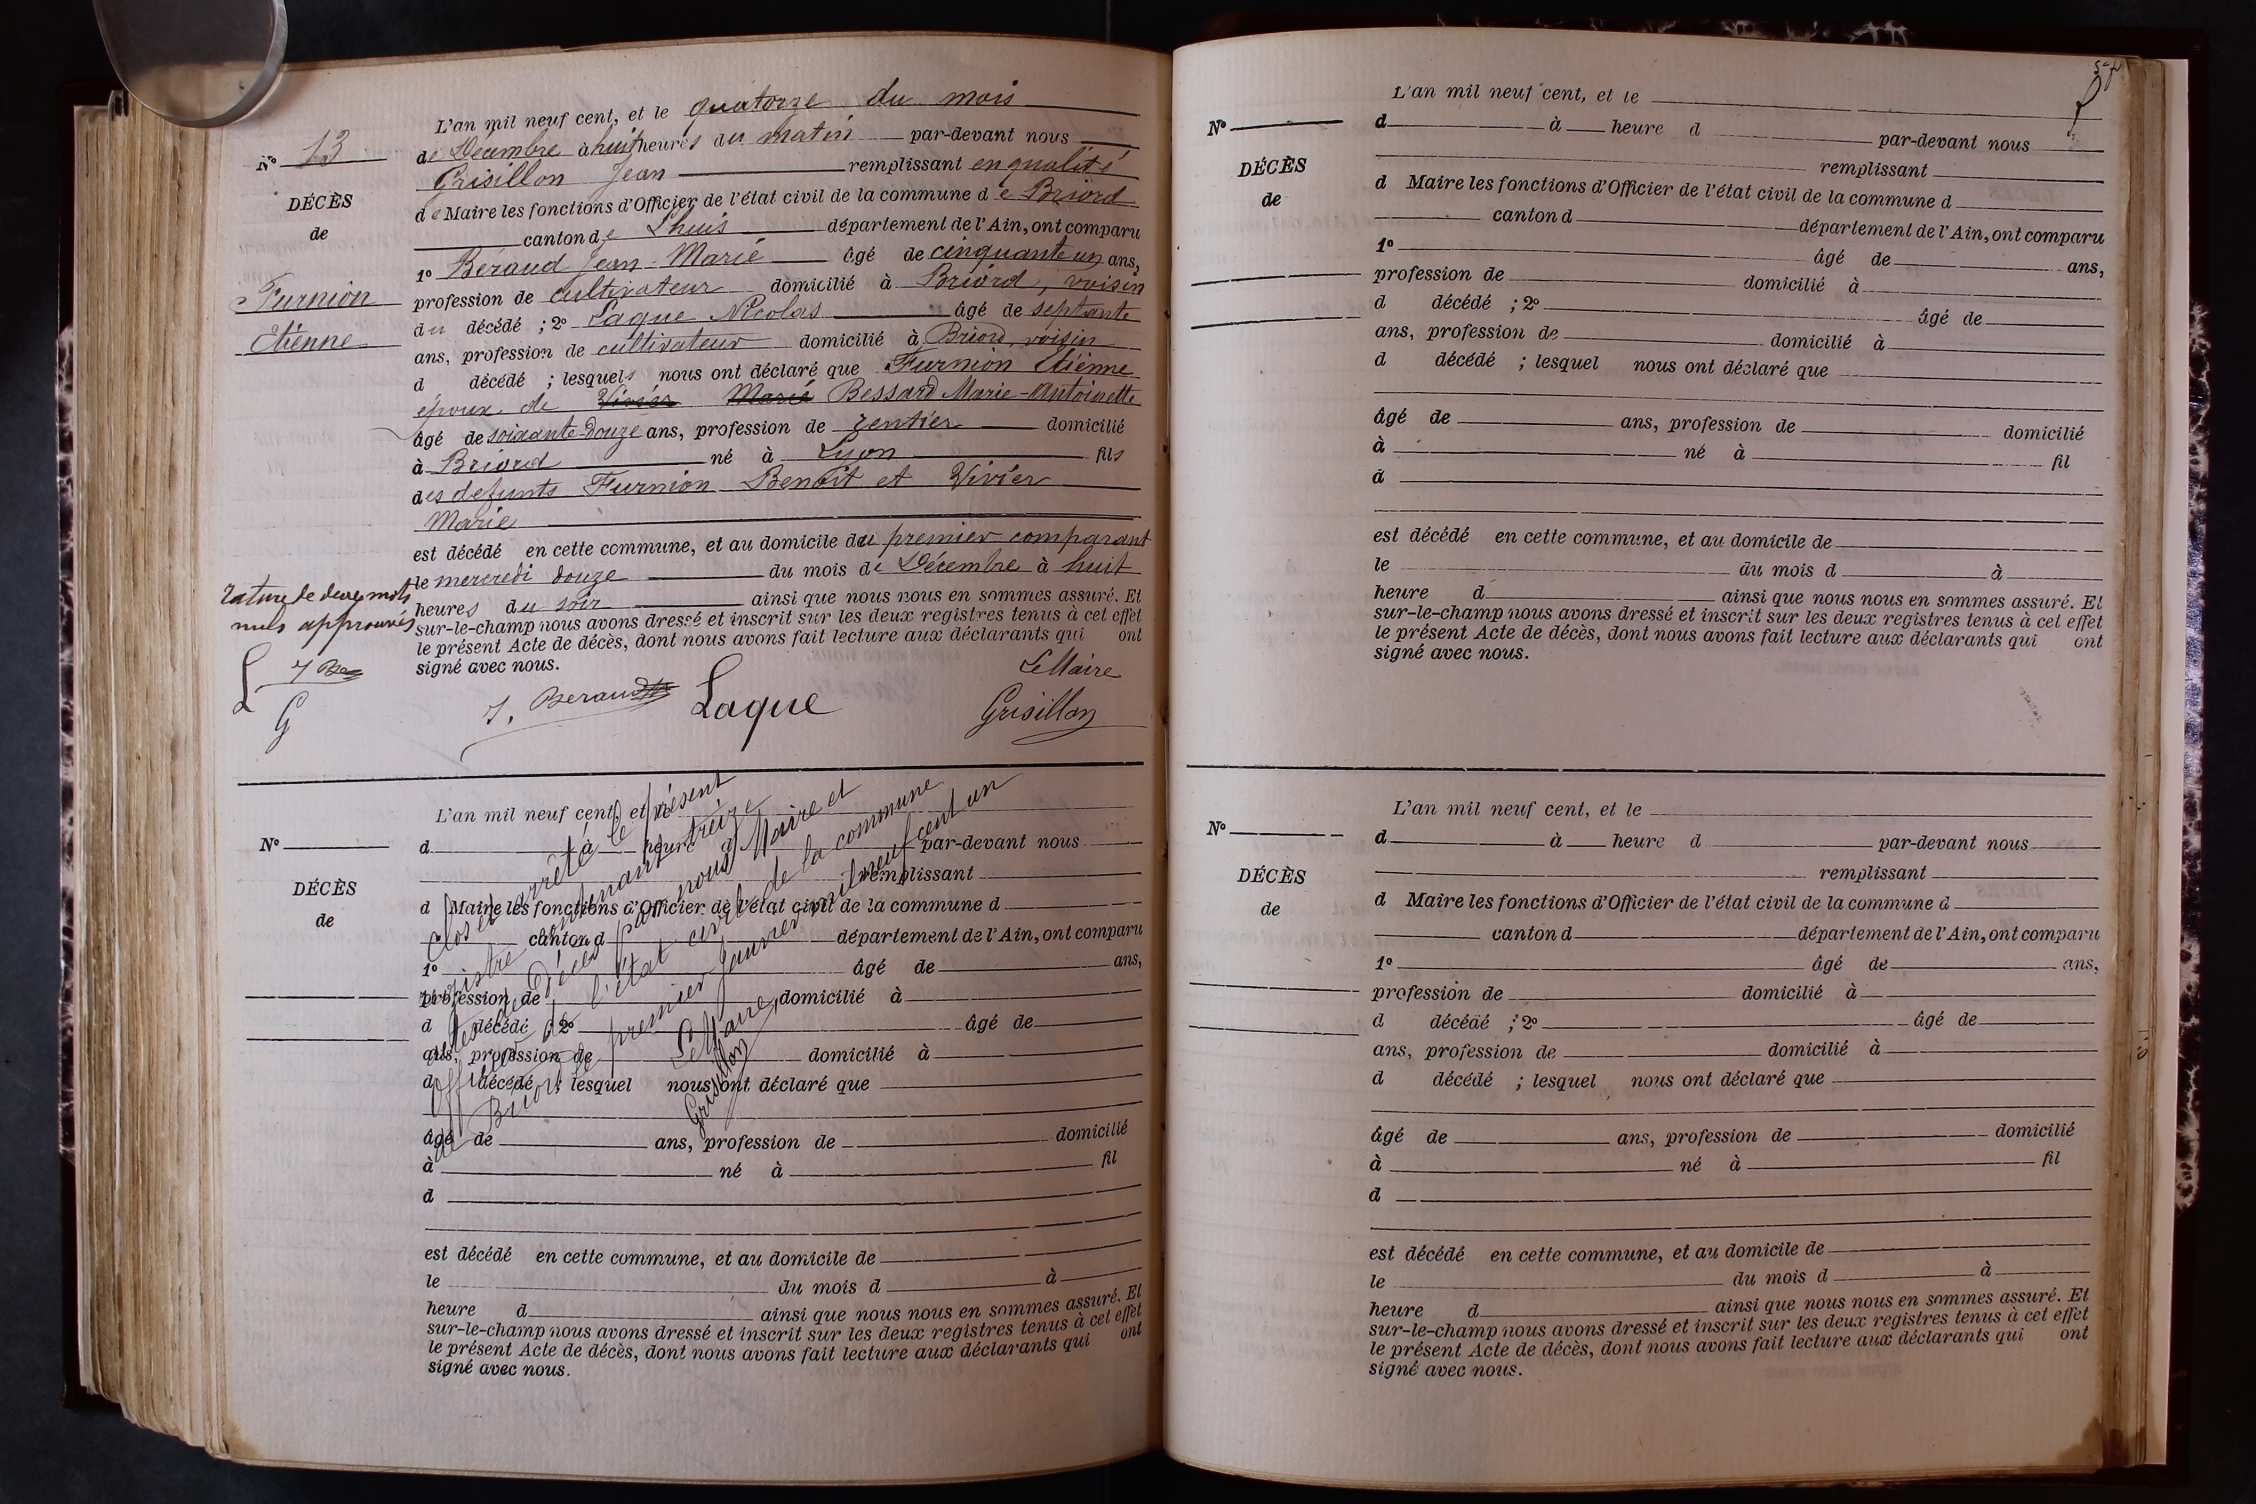 L'an mil neuf cent, et le quatorze du mois
N° 13
de Décembre à huit heures du matin par-devant nous
Grisillon Jean remplissant en qualité
DÉCÈS
de Maire les fonctions d'Officier de l'état civil de la commune de Briord
de
canton de Lhuis département de l'Ain, ont comparu
1° Béraud Jean-Marie âgé de cinquante un ans,
Furnion
profession de cultivateur domicilié à Briord, voisin
du décédé ; 2° Laque Nicolas âgé de septante
Etienne
ans, profession de cultivateur domicilié à Briord, voisin
d décédé ; lesquels nous ont déclaré que Furnion Etienne
époux de Vivier Marie Bessard Marie-Antoinette
âgé de soixante-douze ans, profession de rentier domicilié
à Briord né à Lyon fils
des defunts Furnion Benoît et Vivier
Marie
est décédé en cette commune, et au domicile du premier comparant
le mercredi douze du mois de Décembre à huit
heures du soir ainsi que nous nous en sommes assuré. Et
sur-le-champ nous avons dressé et inscrit sur les deux registres tenus à cet effet
le présent Acte de décès, dont nous avons fait lecture aux déclarants qui ont
signé avec nous.
rature de deux mots
nuls approuvés
L J Be
G
J. Beraud Laque Le Maire
Grisillon
L'an mil neuf cent, et le
N°
d à heure d par-devant nous
remplissant
DÉCÈS
d Maire les fonctions d'Officier de l'état civil de la commune d
de
canton d département de l'Ain, ont comparu
1° âgé de ans,
profession de domicilié à
d décédé ; 2° âgé de
ans, profession de domicilié à
d décédé ; lesquel nous ont déclaré que
âgé de ans, profession de domicilié
à né à fil
d
est décédé en cette commune, et au domicile de
le du mois d à
heure d ainsi que nous nous en sommes assuré. Et
sur-le-champ nous avons dressé et inscrit sur les deux registres tenus à cet effet
le présent Acte de décès, dont nous avons fait lecture aux déclarants qui ont
signé avec nous.
Clos et arrêté le présent
registre contenant treize
actes de Décès par nous Maire et
officier de l'état civil de la commune
de Briord le premier Janvier mil neuf cent un
Le Maire,
Grisillon
L'an mil neuf cent, et le
N°
d à heure d par-devant nous
remplissant
DÉCÈS
d Maire les fonctions d'Officier de l'état civil de la commune d
de
canton d département de l'Ain, ont comparu
1° âgé de ans,
profession de domicilié à
d décédé ; 2° âgé de
ans, profession de domicilié à
d décédé ; lesquel nous ont déclaré que
âgé de ans, profession de domicilié
à né à fil
d
est décédé en cette commune, et au domicile de
le du mois d à
heure d ainsi que nous nous en sommes assuré. Et
sur-le-champ nous avons dressé et inscrit sur les deux registres tenus à cet effet
le présent Acte de décès, dont nous avons fait lecture aux déclarants qui ont
signé avec nous.
L'an mil neuf cent, et le
N°
d à heure d par-devant nous
remplissant
DÉCÈS
d Maire les fonctions d'Officier de l'état civil de la commune d
de
canton d département de l'Ain, ont comparu
1° âgé de ans,
profession de domicilié à
d décédé ; 2° âgé de
ans, profession de domicilié à
d décédé ; lesquel nous ont déclaré que
âgé de ans, profession de domicilié
à né à fil
d
est décédé en cette commune, et au domicile de
le du mois d à
heure d ainsi que nous nous en sommes assuré. Et
sur-le-champ nous avons dressé et inscrit sur les deux registres tenus à cet effet
le présent Acte de décès, dont nous avons fait lecture aux déclarants qui ont
signé avec nous.